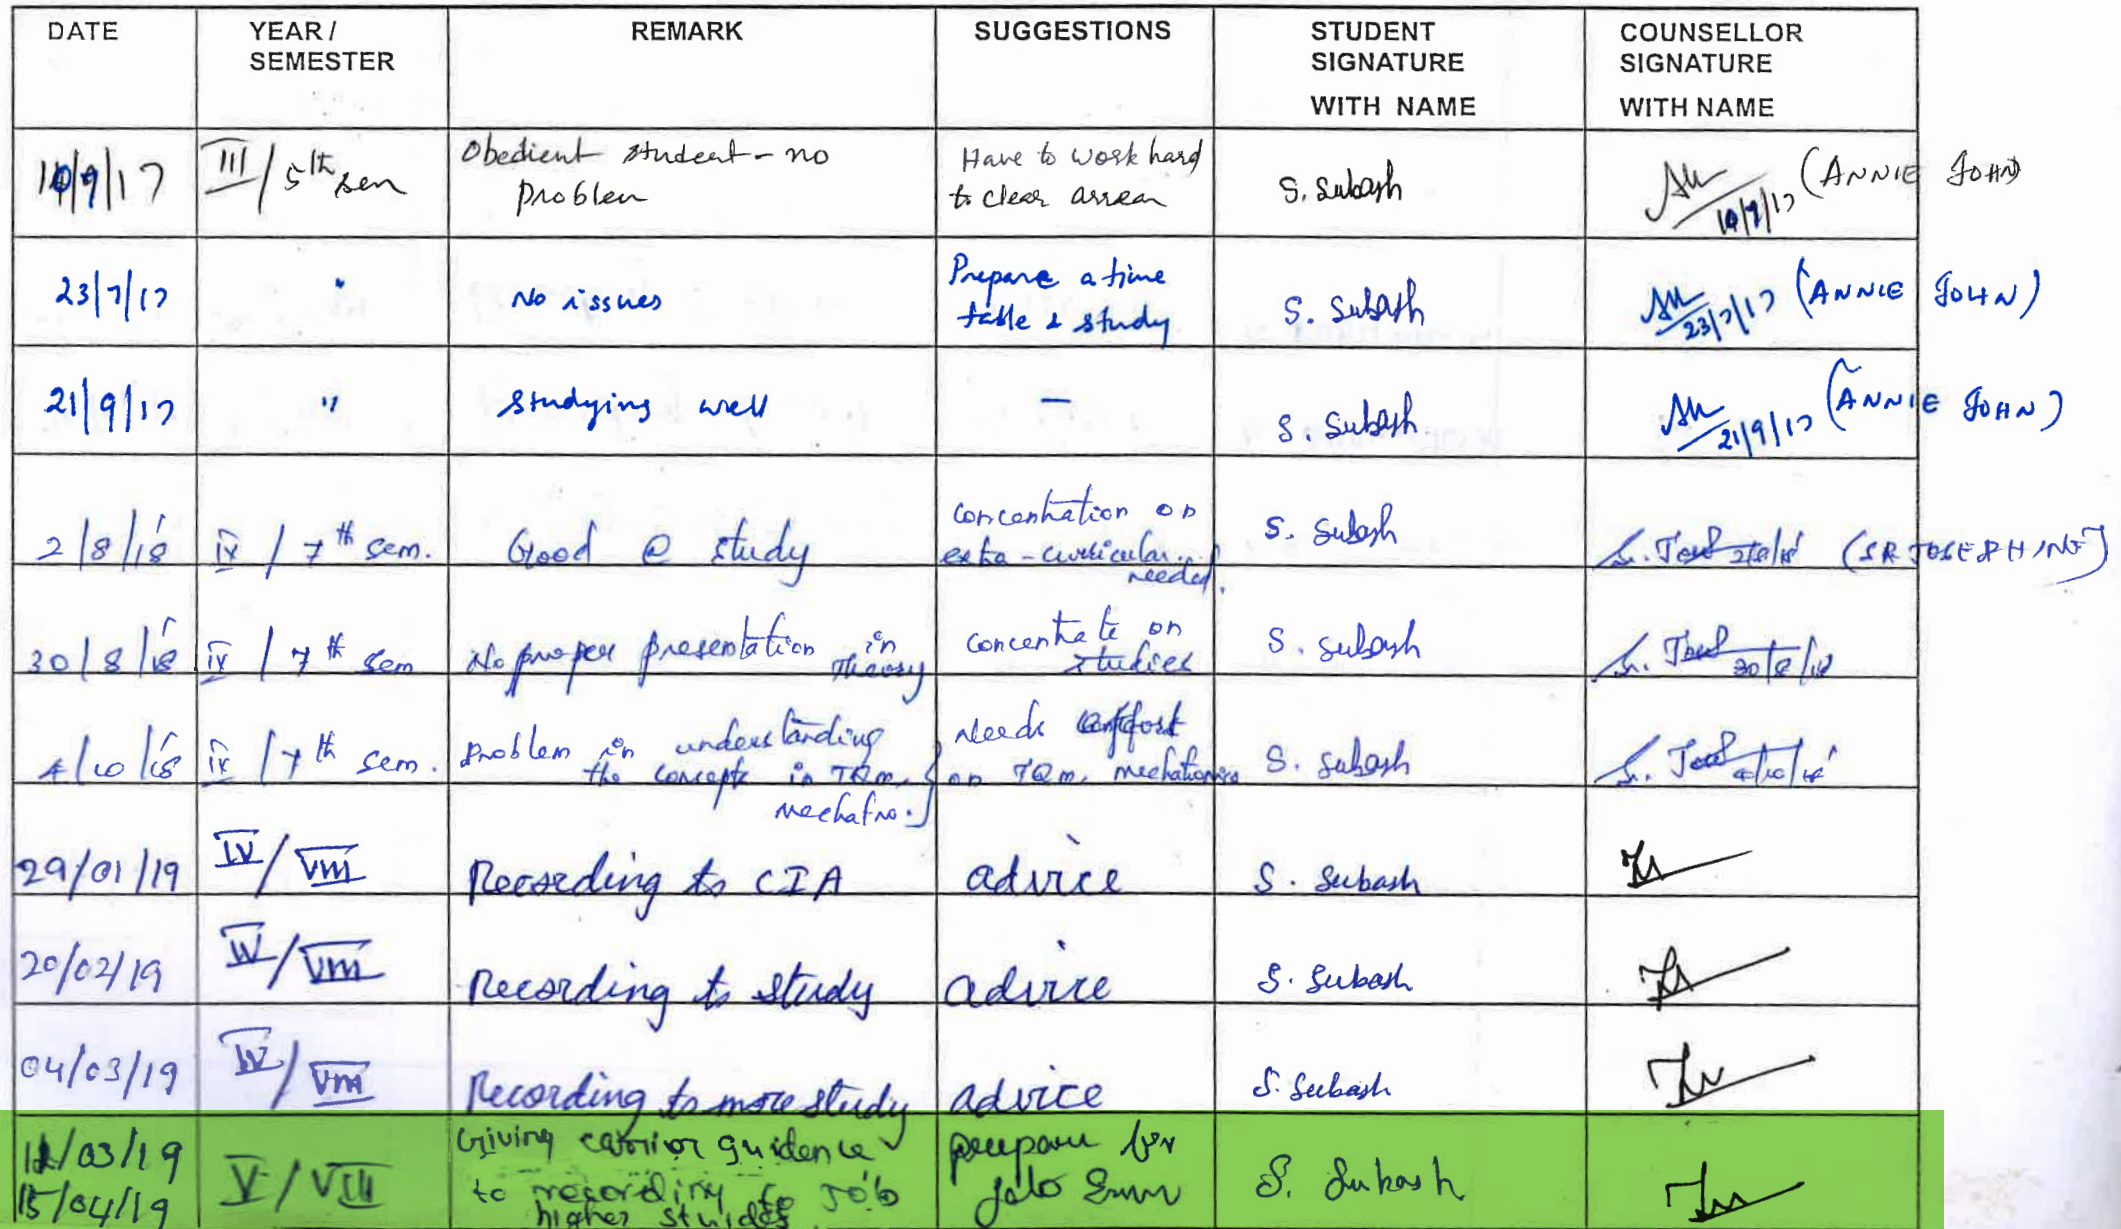 DATE YEAR / SEMESTER REMARK SUGGESTIONS STUDENT SIGNATURE WITH NAME COUNSELLOR SIGNATURE WITH NAME
10/9/17 III / 5th sem Obedient student - no problem Have to work hard to clear arrear S. Subash 10/9/17 (ANNIE JOHN)
23/7/17 " No issues Prepare a time table & study S. Subash 23/7/17 (ANNIE JOHN)
21/9/17 " Studying well — S. Subash 21/9/17 (ANNIE JOHN)
2/8/18 IV / 7th sem. Good @ study concentration on extra-curricular needed. S. Subash 2/8/18 (SR JOSEPHINE)
30/8/18 IV / 7th sem No proper presentation in theory concentrate on studies S. Subash 30/8/18
4/10/18 IV / 7th sem. problem in understanding the concepts in TQM, Mechatro. Needs on TQM, mechatronics S. Subash 4/10/18
29/01/19 IV / VIII Recording to CIA advice S. Subash
20/02/19 IV / VIII Recording to study advice S. Subash
04/03/19 IV / VIII Recording to more study advice S. Subash
/03/19 15/04/19 V / VIII Giving carrior guidence to recording to Job higher studies prepare for S. Subash